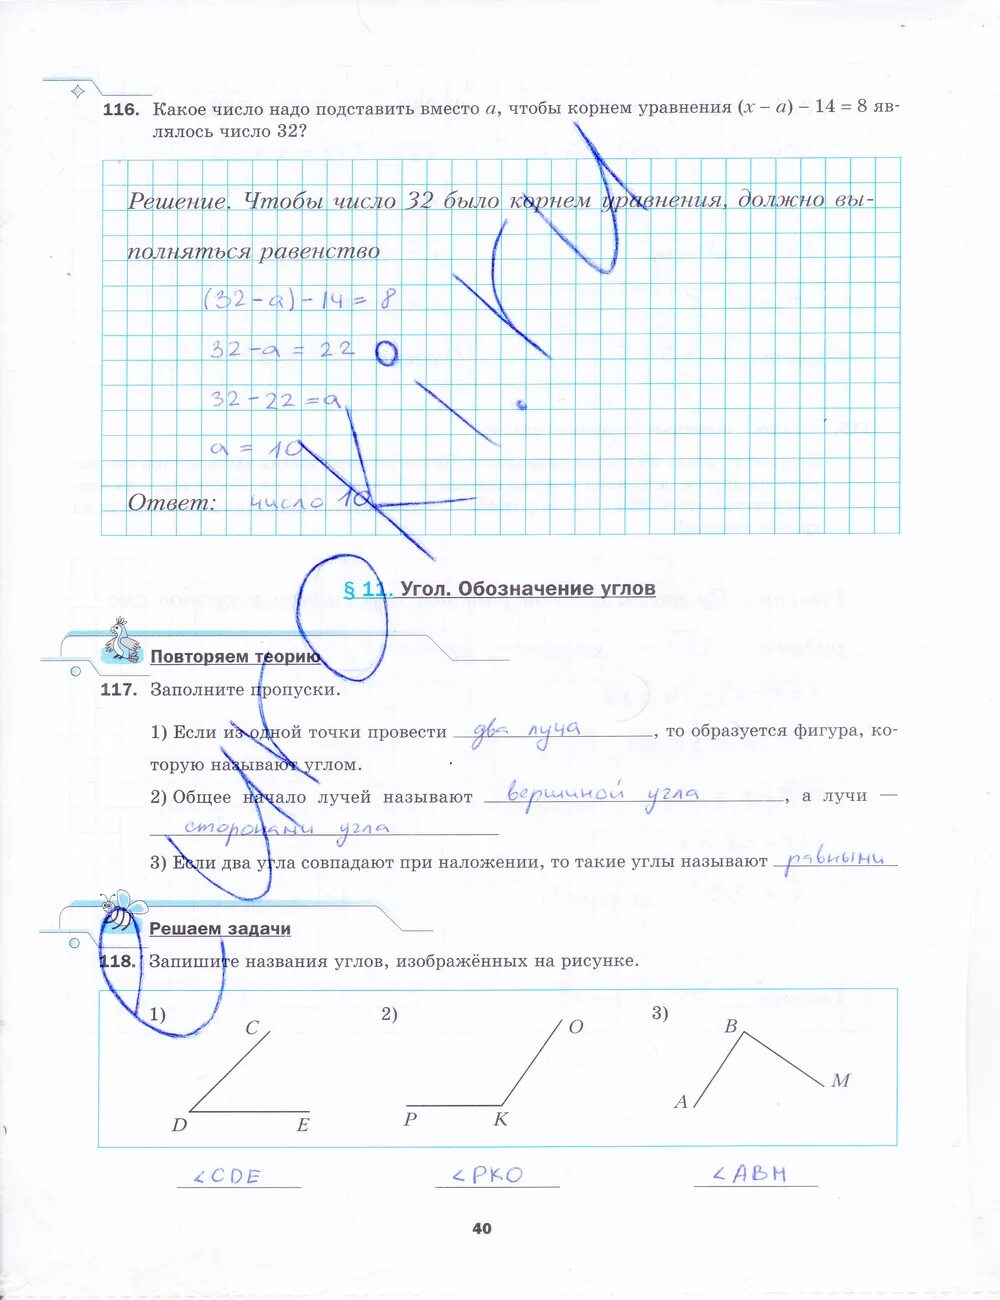 116. Какое число надо подставить вместо a, чтобы корнем уравнения (x – a) – 14 = 8 яв-
лялось число 32?
Решение. Чтобы число 32 было корнем уравнения, должно вы-
полняться равенство
(32-a)-14=8
32-a=22
32-22=a
a=10
Ответ: число 10
§ 11. Угол. Обозначение углов
Повторяем теорию
117. Заполните пропуски.
1) Если из одной точки провести два луча, то образуется фигура, ко-
торую называют углом.
2) Общее начало лучей называют вершиной угла, а лучи —
сторонами угла
3) Если два угла совпадают при наложении, то такие углы называют равными
Решаем задачи
118. Запишите названия углов, изображённых на рисунке.
1) 2) 3)
C O B M
D E P K A
∠CDE ∠PKO ∠ABM
40